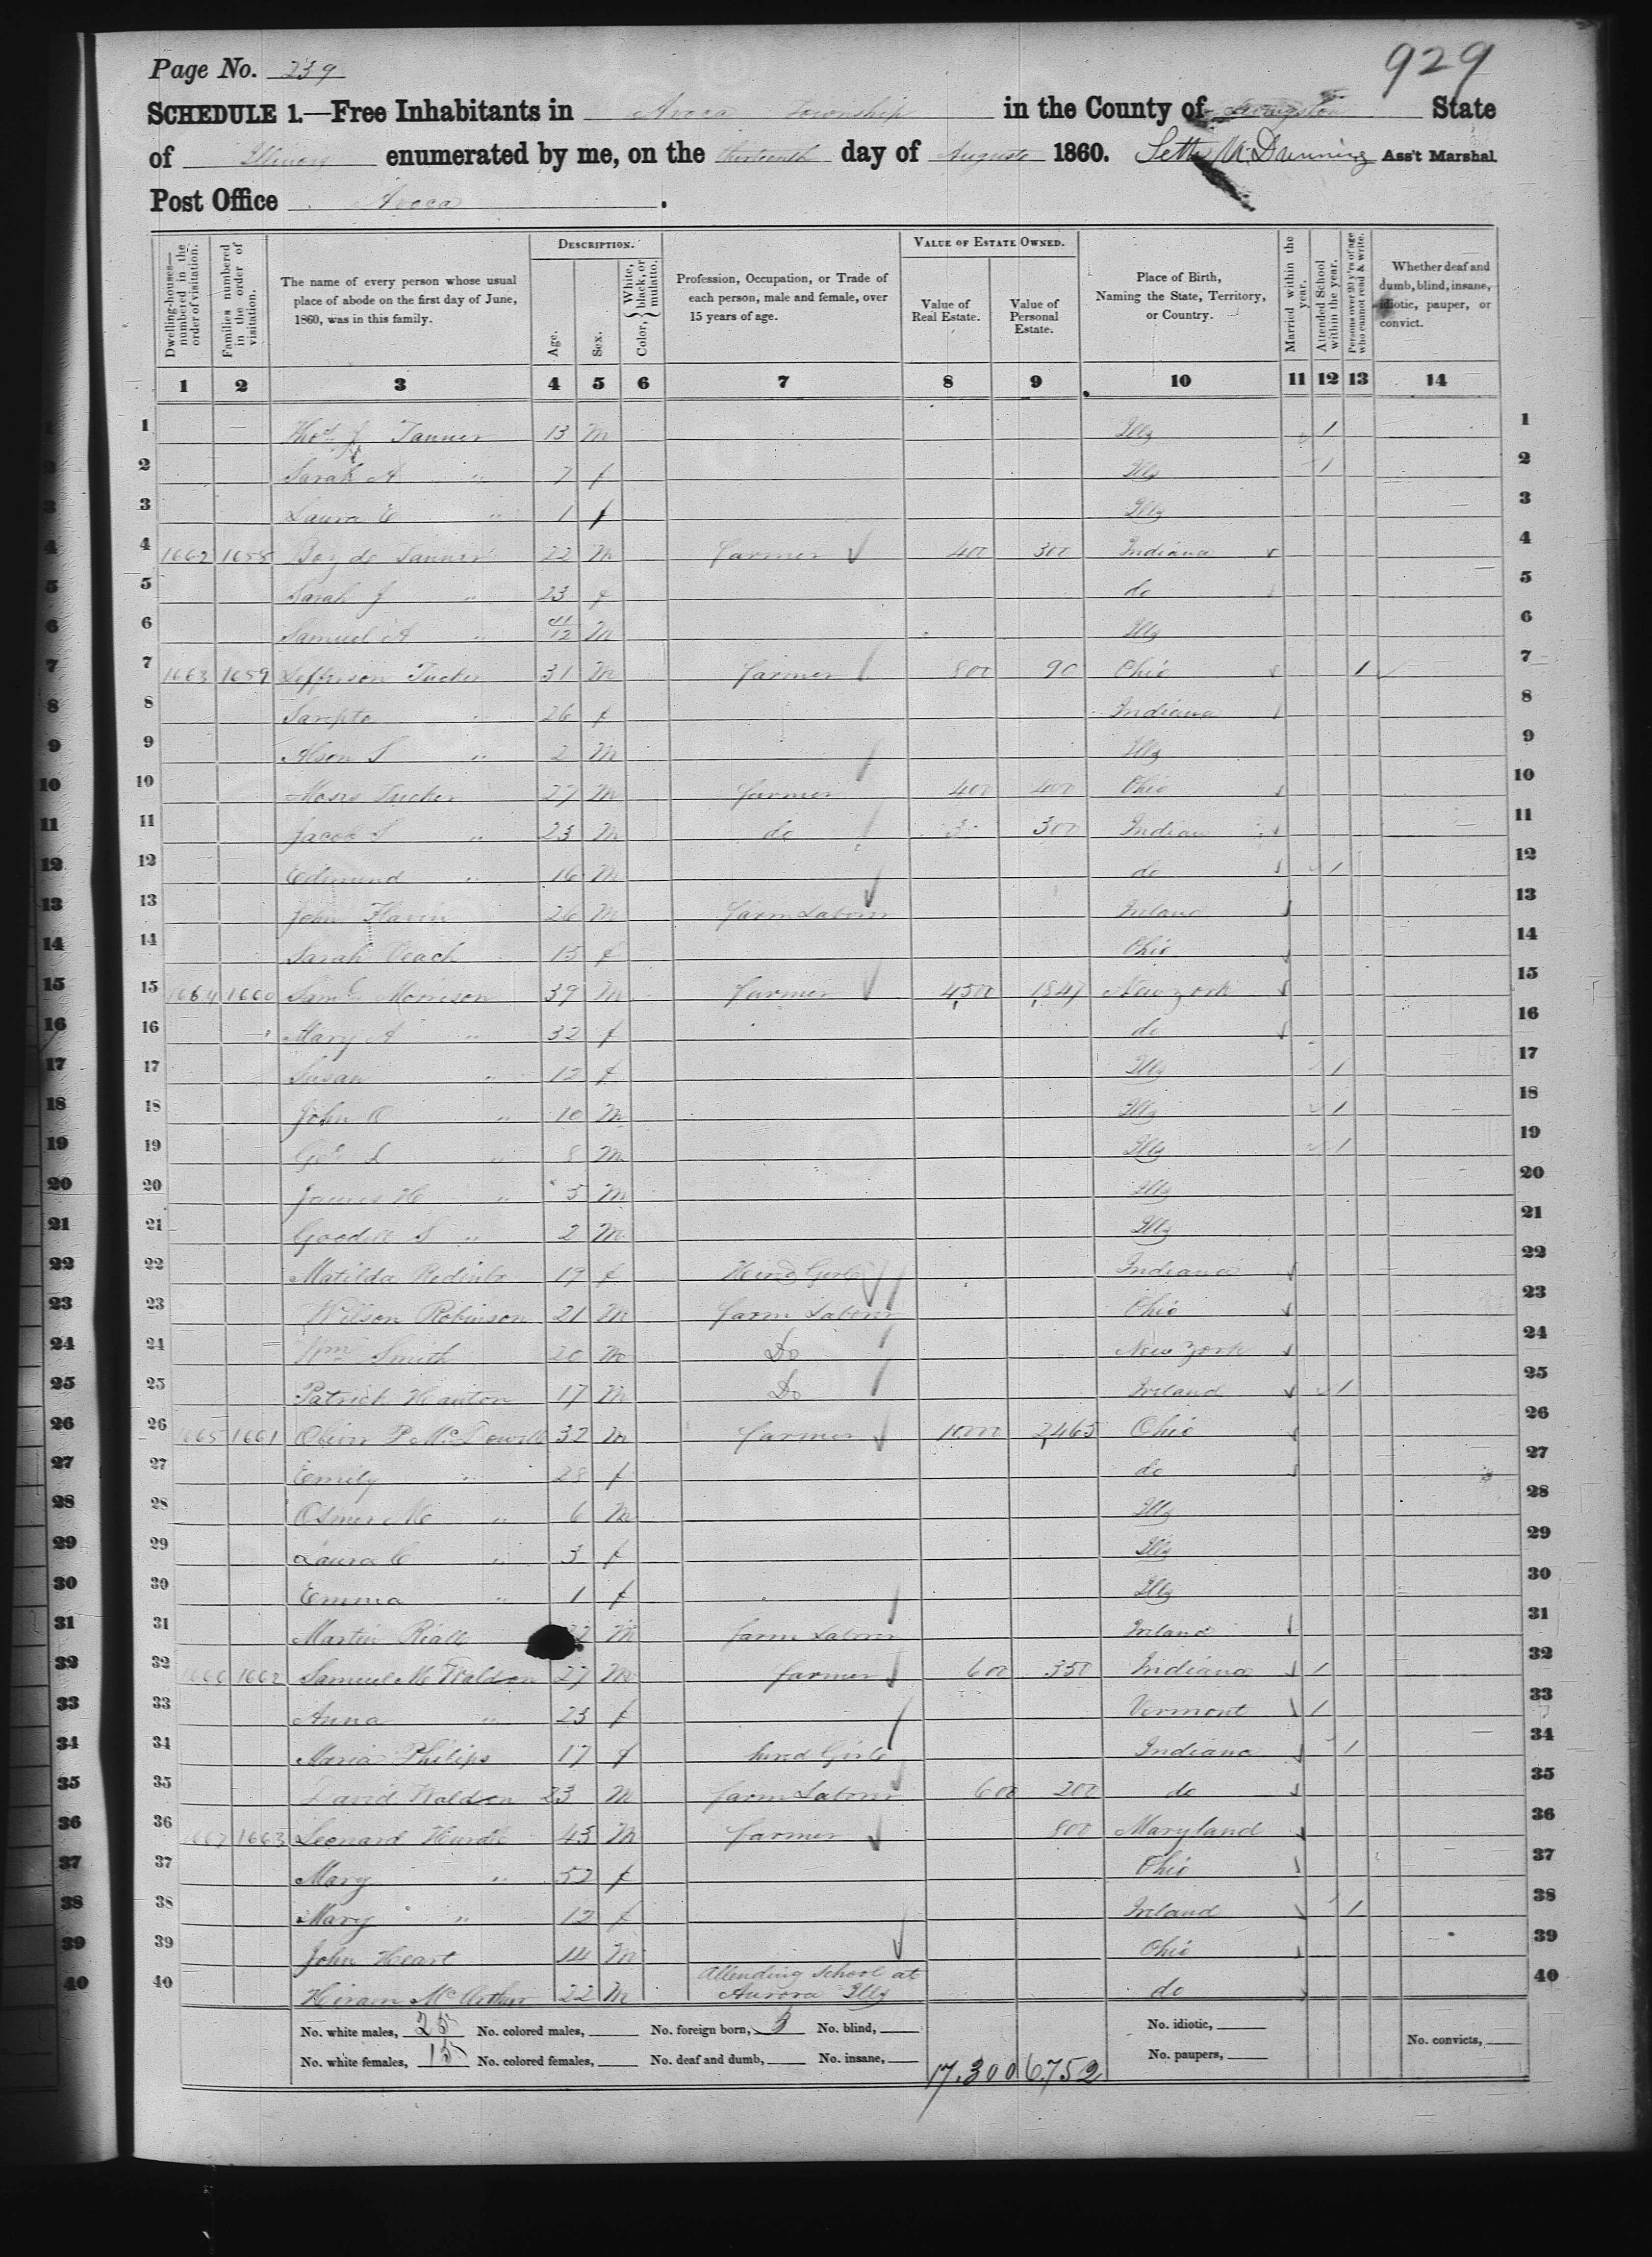 929
Page No. 239
SCHEDULE 1.—Free Inhabitants in Avoca Township in the County of Livingston State
of Illinois enumerated by me, on the thirteenth day of August 1860. Seth M. Dunning Ass't Marshal
Post Office Avoca.
Dwelling-houses—numbered in the order of visitation.
Families numbered in the order of visitation.
The name of every person whose usual place of abode on the first day of June, 1860, was in this family.
DESCRIPTION.
Age.
Sex.
Color, { White, black, or mulatto.
Profession, Occupation, or Trade of each person, male and female, over 15 years of age.
VALUE OF ESTATE OWNED.
Value of Real Estate.
Value of Personal Estate.
Place of Birth, Naming the State, Territory, or Country.
Married within the year.
Attended School within the year.
Persons over 20 y'rs of age who cannot read & write.
Whether deaf and dumb, blind, insane, idiotic, pauper, or convict.
1 2 3 4 5 6 7 8 9 10 11 12 13 14
1 Thos J Tanner 13 m Ills 1 1
2 Sarah A " 7 f Ills 1 2
3 Laura E " 1 f Ills 3
4 1662 1658 Tanner 22 m farmer 400 300 Indiana 4
5 Sarah J " 23 f do 5
6 Samuel A " 11/12 m Ills 6
7 1663 1659 Jefferson Tucker 31 m farmer 800 90 Ohio 1 7
8 " 26 f Indiana 8
9 Alson S " 2 m Ills 9
10 Moses Tucker 27 m farmer 400 400 Ohio 10
11 Jacob S " 23 m do 300 Indiana 11
12 Edmund " 16 m do 1 12
13 John Flavin 26 m farm Labour Ireland 13
14 Sarah Veach 15 f Ohio 14
15 1664 1660 Saml Morrison 39 m farmer 4,500 1,847 New york 15
16 Mary A " 32 f do 16
17 Susan " 12 f Ills 1 17
18 John O " 10 m Ills 1 18
19 Geo L " 8 m Ills 1 19
20 James H " 5 m Ills 20
21 Goodell S " 2 m Ills 21
22 Matilda 19 f Hired Girl Indiana 22
23 Wilson Robinson 21 m farm Labour Ohio 23
24 Wm Smith 20 m Do New York 24
25 Patrick Hanton 17 m Do Ireland 1 25
26 1665 1661 Oliver P McDowell 32 m farmer 2,465 Ohio 26
27 Emily " 28 f do 27
28 Osmer Mc " 6 m Ills 28
29 Laura C " 3 f Ills 29
30 Emma " 1 f Ills 30
31 Martin Riall m farm Labour Ireland 31
32 1666 1662 Samuel M Waldson 27 m farmer 600 350 Indiana 1 32
33 Anna " 23 f Vermont 1 33
34 Maria Philips 17 f hired Girl Indiana 1 34
35 David Waldson 23 m farm Labour 600 200 do 35
36 1667 1663 Leonard 45 m farmer 800 Maryland 36
37 Mary " 52 f Ohio 37
38 Mary " 12 f Ireland 1 38
39 John Heart 14 m Ohio 39
40 Hiram McArthur 22 m Attending School at Aurora Ills do 40
No. white males, 25 No. colored males, No. foreign born, 5 No. blind, No. idiotic,
No. white females, 15 No. colored females, No. deaf and dumb, No. insane, 17,300 6,752 No. paupers, No. convicts,